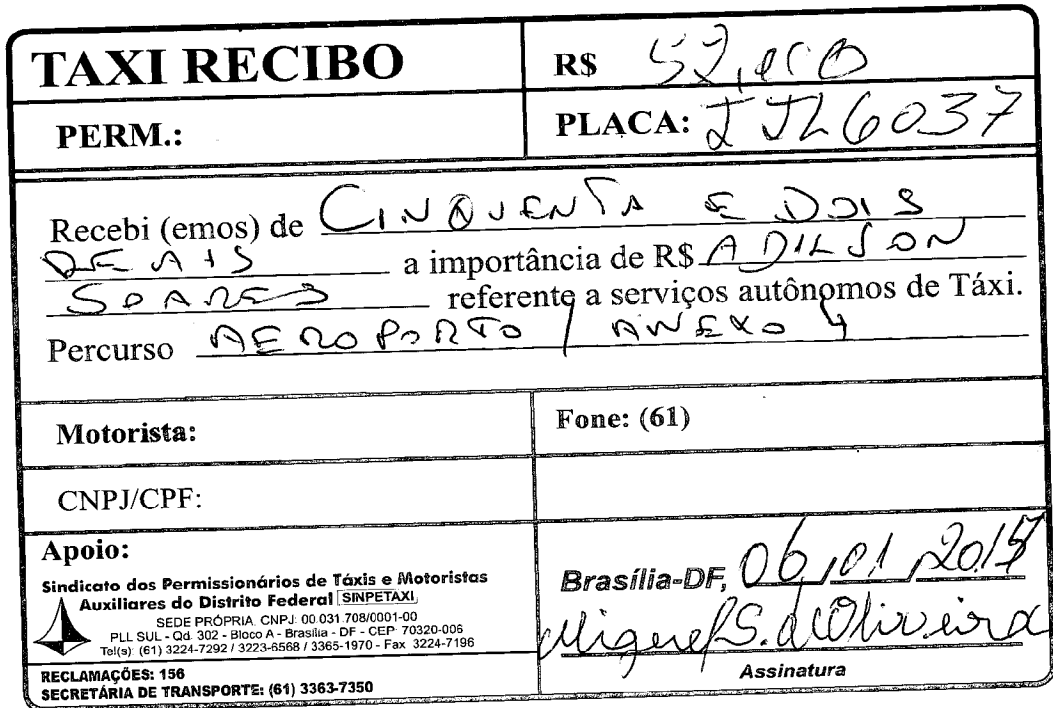 TAXI RECIBO
R$ 52,00
PERM.:
PLACA: JJL6037
Recebi (emos) de CINQUENTA E DOIS
REAIS a importância de R$ ADILSON
SOARES referente a serviços autônomos de Táxi.
Percurso AEROPORTO / ANEXO 4
Motorista:
Fone: (61)
CNPJ/CPF:
Apoio:
Sindicato dos Permissionários de Táxis e Motoristas
Auxiliares do Distrito Federal SINPETAXI
SEDE PRÓPRIA, CNPJ: 00.031.708/0001-00
PLL SUL - Qd. 302 - Bloco A - Brasília - DF - CEP: 70320-006
Tel(s): (61) 3224-7292 / 3223-6568 / 3365-1970 - Fax 3224-7196
RECLAMAÇÕES: 156
SECRETÁRIA DE TRANSPORTE: (61) 3363-7350
Brasília-DF, 06,01,2015
Miguel S. d'Oliveira
Assinatura